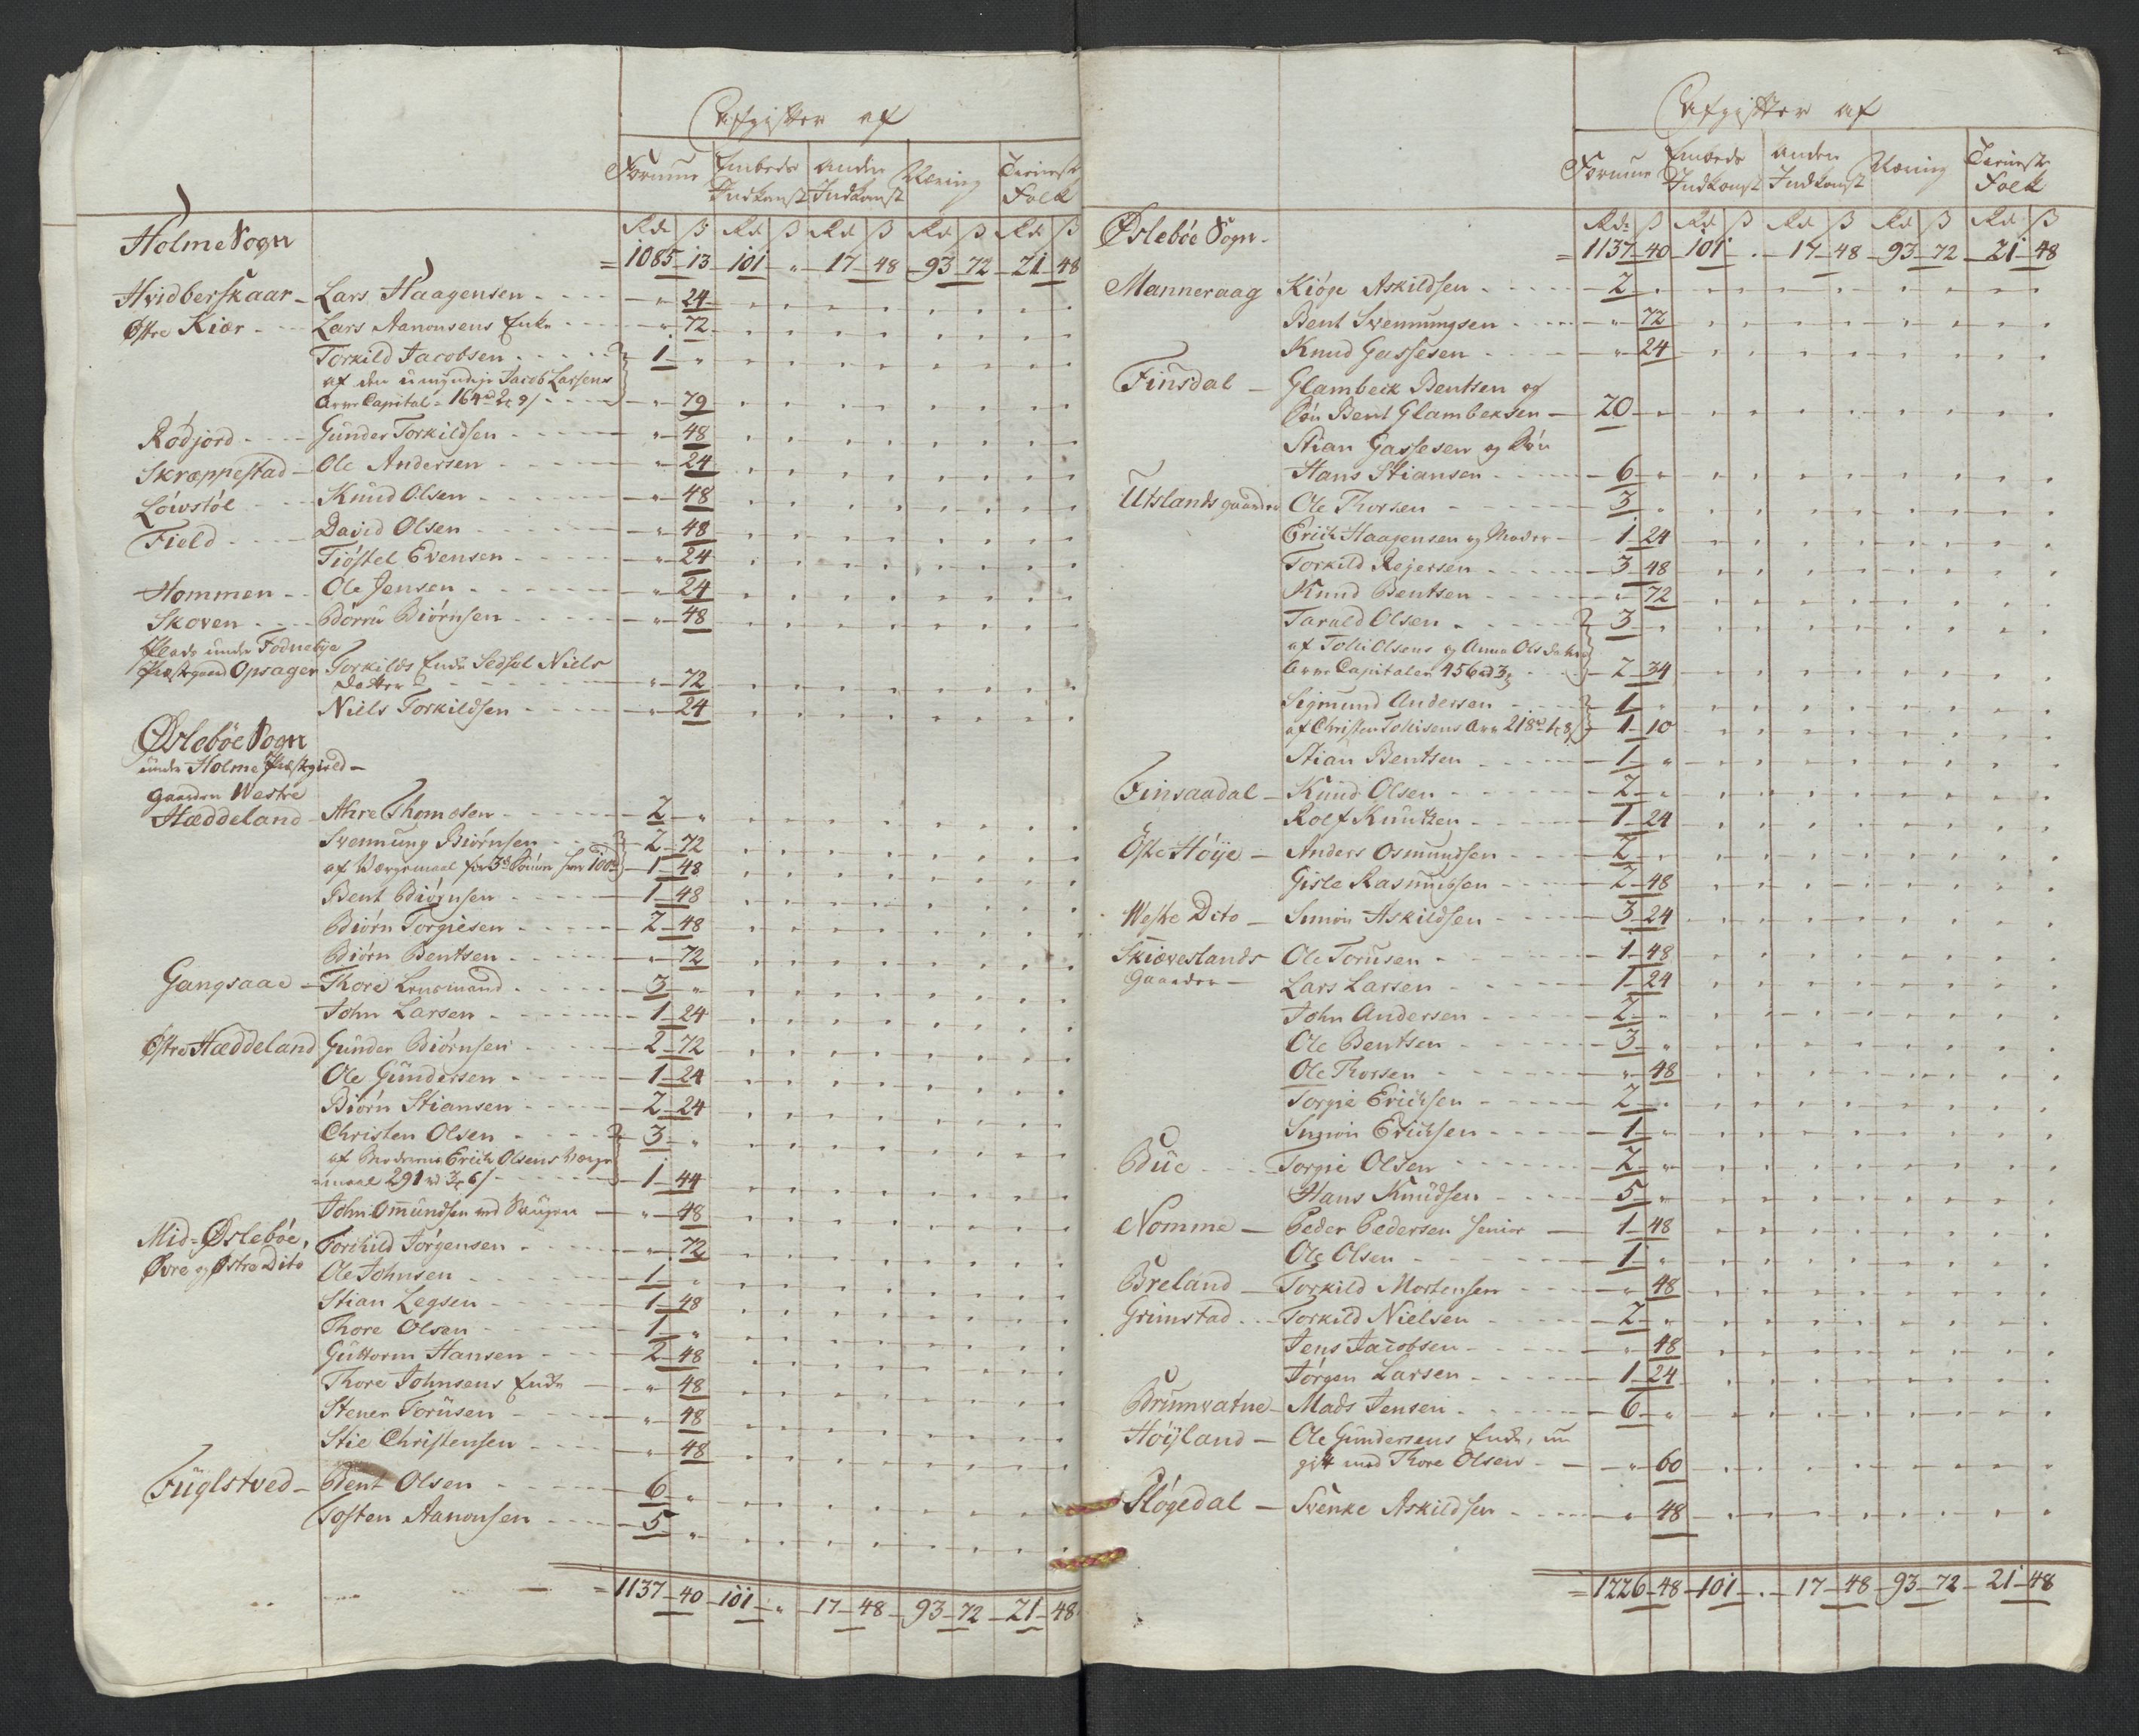 Afgifter af
Formue Embeds Indkomst Anden Indkomst Næring Tieneste Folk
Rd ß Rd ß Rd ß Rd ß Rd ß
Holme Sogn
= 1085 - 13 - 101 - " - 17 - 48 - 93 - 72 - 21 - 48
Hvidberskaar - Lars Haagensen - " - 24
Østre Kiær - Lars Aanonsens Enke - " - 72
Torkild Jacobsen - 1 - "
af den umyndige Jacob Larsens
Arve Capital - 164 rd 2 ꝗ 9 ß - " - 79
Rødjord - Gunder Torkildsen - " - 48
Skræppestad - Ole Andersen - " - 24
Løvstøl - Knud Olsen - " - 48
Field - David Olsen - " - 48
Tiøstel Evensen - " - 24
Hommen - Ole Jensen - " - 24
Skoven - Børru Biørnsen - " - 48
Plads under Fodnebye
Præstegaard Opsager - Torkilds Enke Sedsel Niels
Datter - " - 72
Niels Torkildsen - " - 24
Øslebøe Sogn
under Holme Præstegield -
Gaarden Westre
Hæddeland - Aure Thomesen - 2 - "
Svennung Biørnsen - 2 - 72
af Værgemaal for 3de Børn hver 100 rd - 1 - 48
Bent Biørnsen - 1 - 48
Biørn Torgiesen - 2 - 48
Biørn Bentsen - " - 72
Gangsaae - Thore Lensmand - 3 - "
John Larsen - 1 - 24
Østre Hæddeland - Gunder Biørnsen - 2 - 72
Ole Gündersen - 1 - 24
Biørn Stiansen - 2 - 24
Christen Olsen - 3 - "
af Broderens Erich Olsens Værge
maal 291 rd 3 ꝗ 6 ß - 1 - 44
John Omundsen ved Haugen - " - 48
Mid-Øslebøe, Torchild Jørgensen - " - 72
Øvre og Østre Dito Ole Johnsen - 1 - "
Stian Legsen - 1 - 48
Thore Olsen - 1 - "
Guttorm Hansen - 2 - 48
Thore Johnsens Enke - " - 48
Stener Torüsen - " - 48
Stie Christensen - " - 48
Füglstved - Bent Olsen - 6 - "
Tosten Aanonsen - 5 - "
= 1137 - 40 - 101 - " - 17 - 48 - 93 - 72 - 21 - 48
Afgifter af
Formue Embeds Indkomst Anden Indkomst Næring Tieneste Folk
Rd ß Rd ß Rd ß Rd ß Rd ß
Øslebøe Sogn -
= 1137 - 40 - 101 - " - 17 - 48 - 93 - 72 - 21 - 48
Manneraag Kiøge Askildsen - 2 - "
Bent Svennungsen - " - 72
Knud Gassesen - " - 24
Finsdal - Glambeck Bentsen og
Søn Bent Glambeksen - 20 - "
Stian Gassesen og Søn
Hans Stiansen - 6 - "
Utslands gaarder Ole Thorsen - 3 - "
Erich Haagensen og Moder - 1 - 24
Torkild Rejersen - 3 - 48
Knud Bentsen - " - 72
Tarald Olsen - 3 - "
af Tolli Olsens og Anna Olsdatters
Arve Capitaler 456 rd 3 ꝗ - 2 - 34
Sigmund Andersen - 1 - "
af Christen Tollisens Arv 218 rd 1 ꝗ 8 ß - 1 - 10
Stian Bentsen - 1 - "
Finsaadal - Knud Olsen - 2 - "
Rolf Knutzen - 1 - 24
Østre Høije - Anders Osmundsen - 2 - "
Gisle Rasmussen - 2 - 48
Westre Dito - Simon Askildsen - 3 - 24
Skiæveslands Ole Torusen - 1 - 48
Gaarder - Lars Larsen - 1 - 24
John Andersen - 2 - "
Ole Bentsen - 3 - "
Ole Thorsen - " - 48
Torgie Erichsen - 2 - "
Sigvor Erichsen - 1 - "
Büe - Torgie Olsen - 2 - "
Hans Knudsen - 5 - "
Nomme - Peder Pedersen senior - 1 - 48
Ole Olsen - 1 - "
Breland - Torkild Mortensen - " - 48
Grimstad - Torkild Nielsen - 2 - "
Jens Jacobsen - " - 48
Jørgen Larsen - 1 - 24
Brunvatne - Mads Jensen - 6 - "
Høyland - Ole Gündersens Enke, nu
gift med Thore Olsen - " - 60
Sløgedal - Svenke Askildsen - " - 48
= 1226 - 48 - 101 - " - 17 - 48 - 93 - 72 - 21 - 48